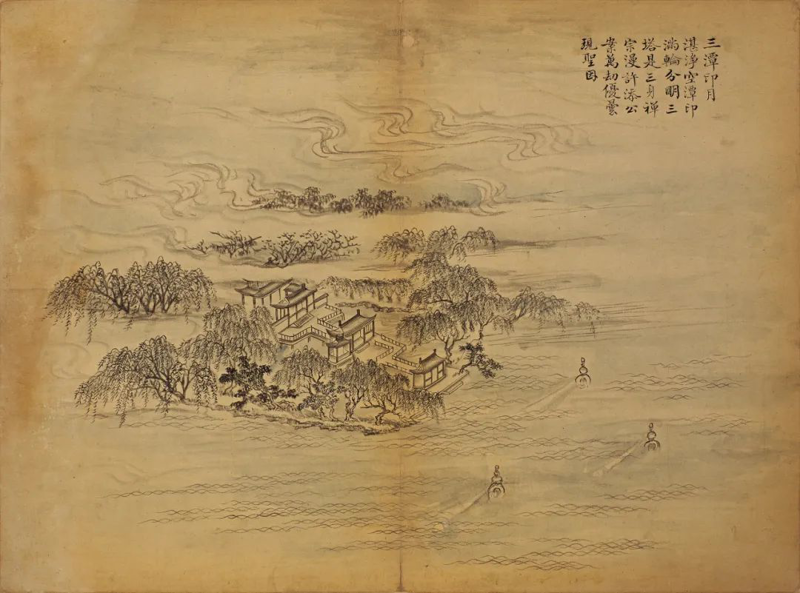 三潭印月
湛淨空潭印
滿輪分明三
塔是三身禪
宗漫許添公
案萬劫優曇
現聖因